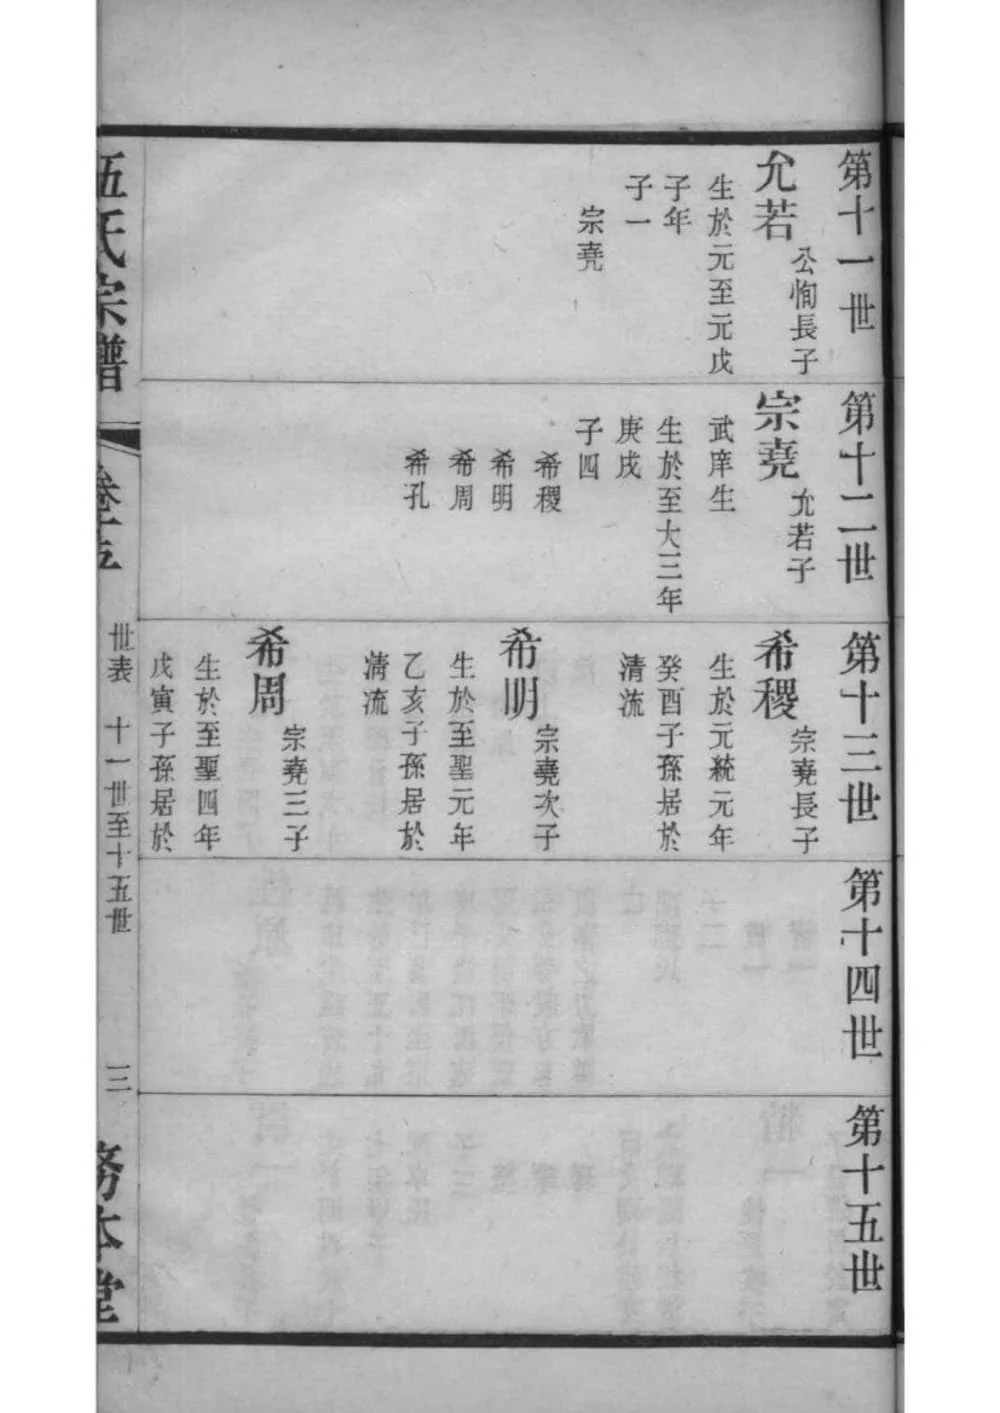 第十一世
允若
公恂長子
生於元至元戊
子年
子一
宗堯
第十二世
宗堯
允若子
武庠生
生於至大三年
庚戌
子四
希稷
希明
希周
希孔
第十三世
希稷
宗堯長子
生於元統元年
癸酉子孫居於
清流
希明
宗堯次子
生於至聖元年
乙亥子孫居於
清流
希周
宗堯三子
生於至聖四年
戊寅子孫居於
第十四世
第十五世
伍氏宗譜
卷之五
世表 十一世至十五世
三
務本堂